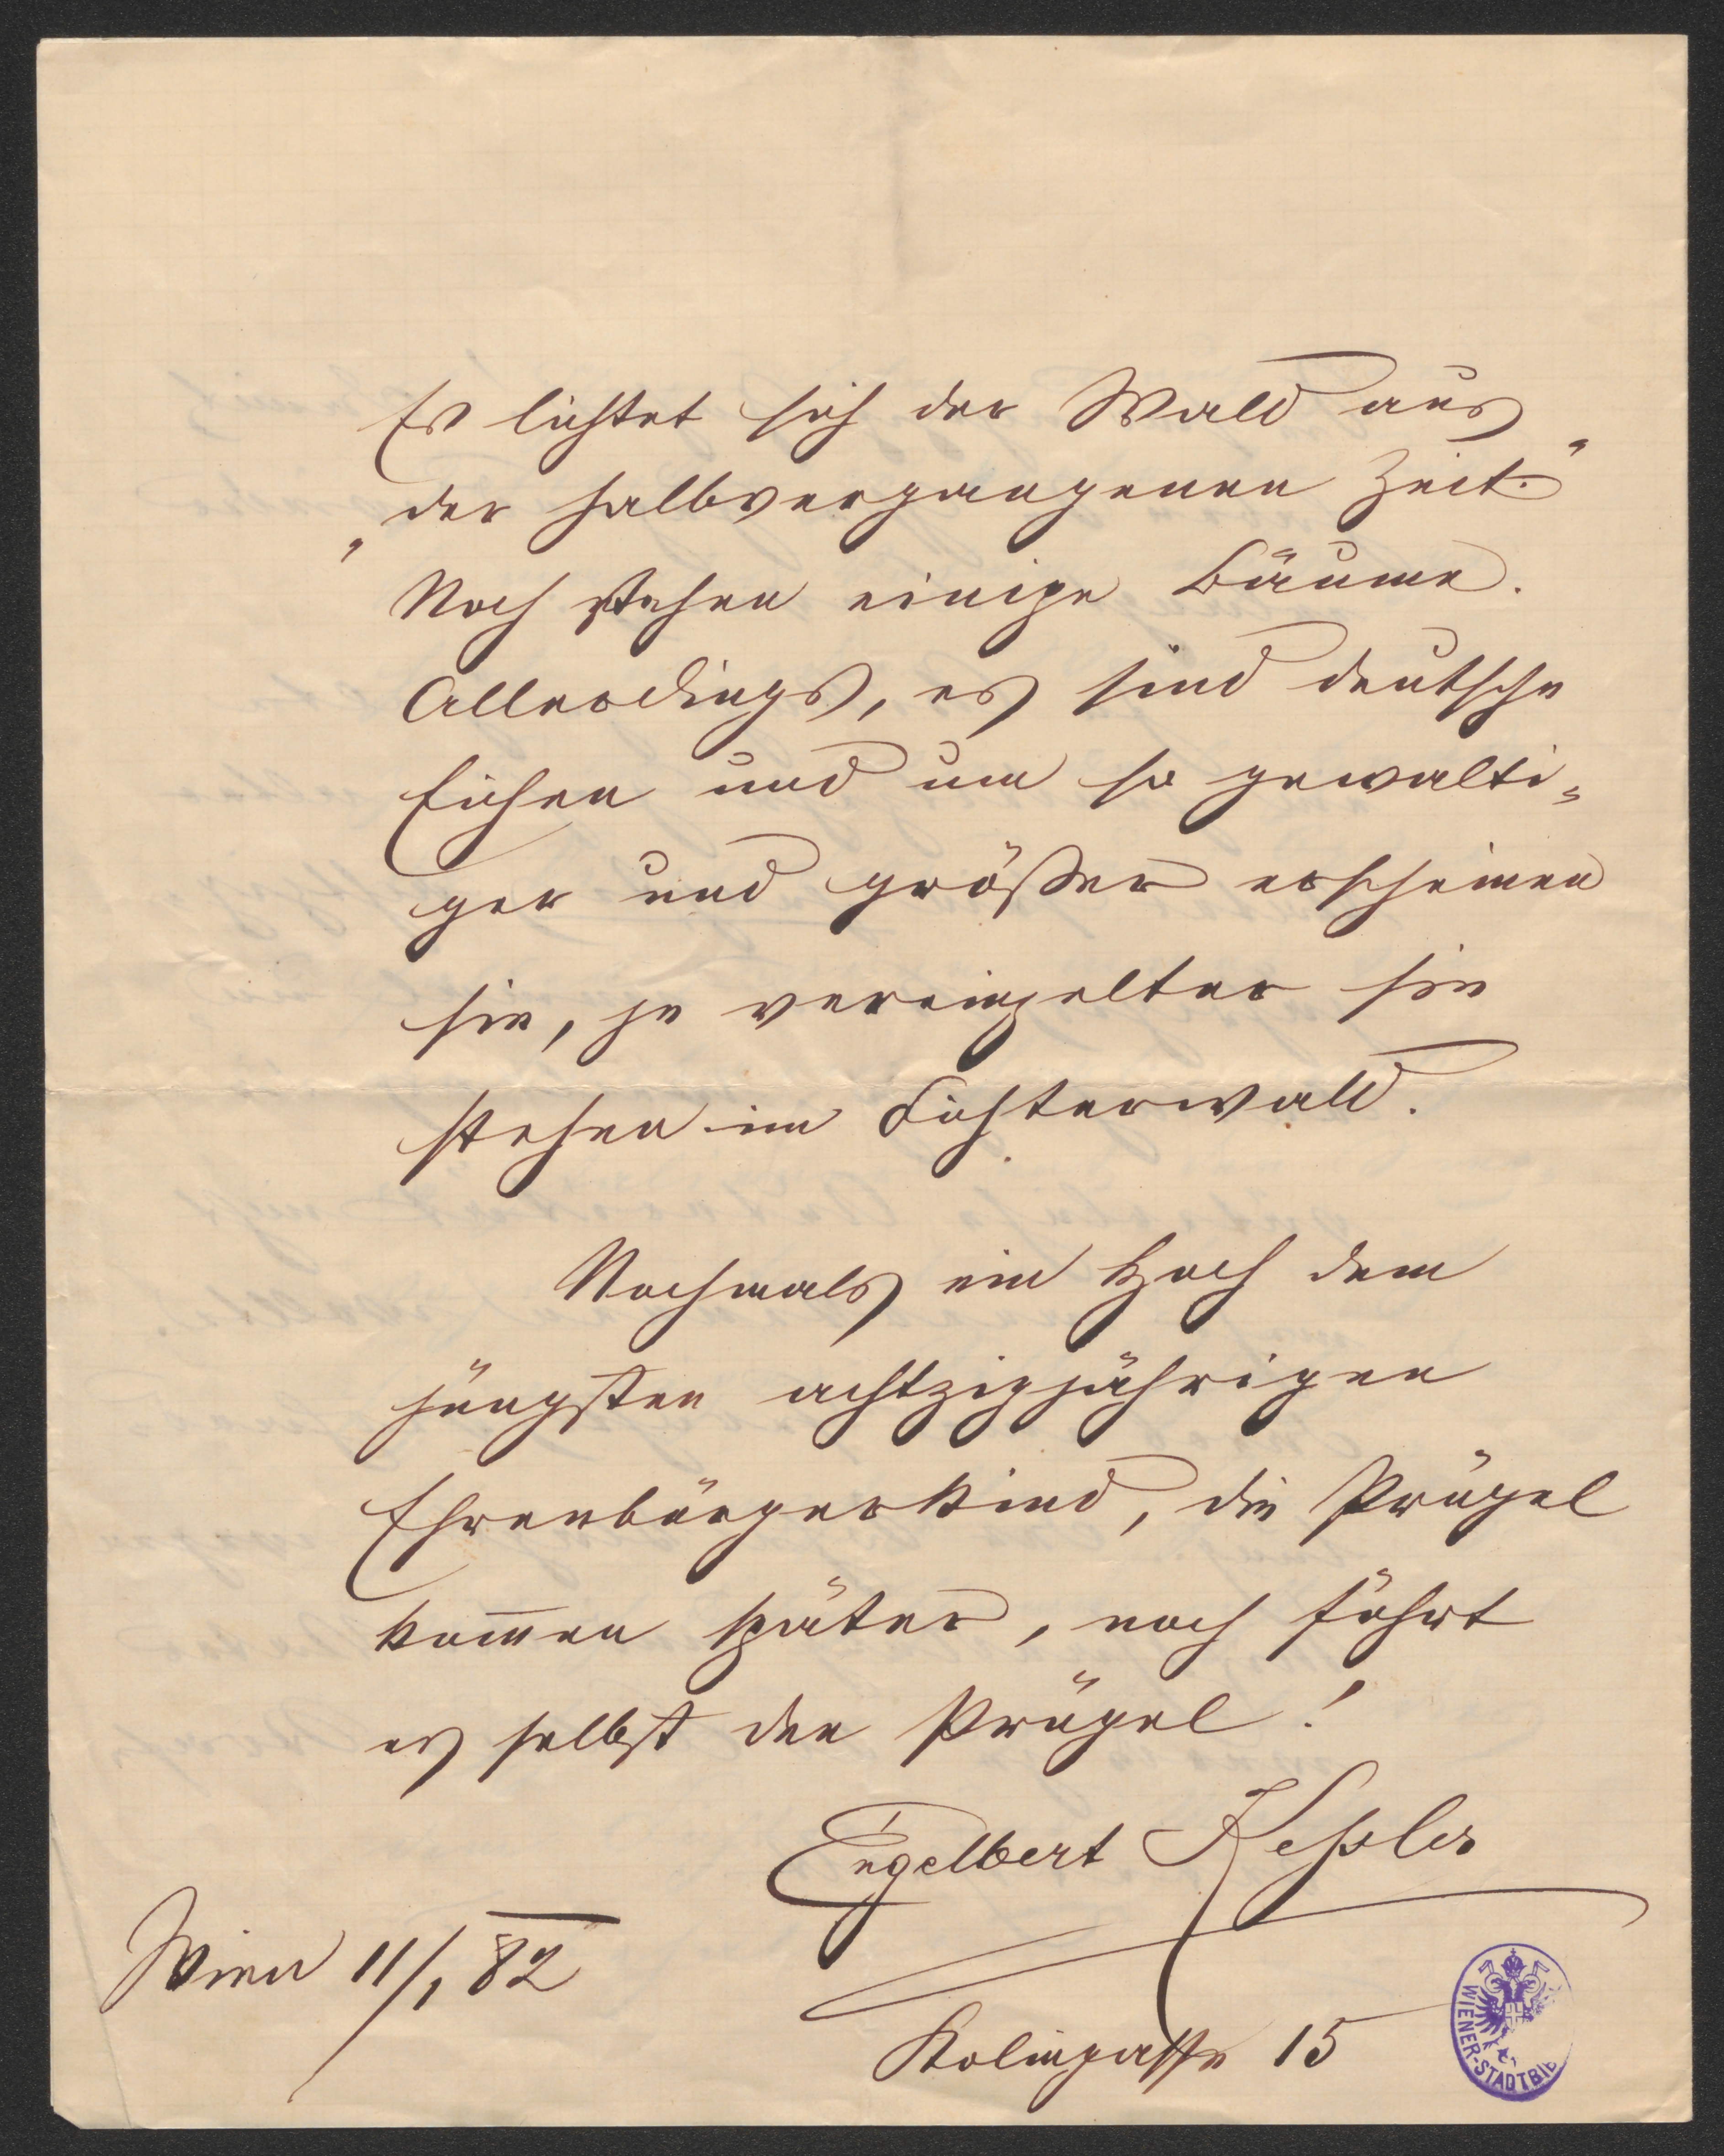 Es lichtet sich der Wald aus
„der halbvergangenen Zeit.“
Noch stehen einige Bäume.
Allerdings, es sind deutsche
Eichen und um so gewalti-
ger und größer erscheinen
sie, je vereinzelter sie
stehen im Lichterwald.
Nochmals ein Hoch dem
jüngsten achtzigjährigen
Ehrenbürgerkind, die Prügel
kom̅en später, noch führt
es selbst den Prügel!
Engelbert Keßler
Wien 11/1 82
Kolingasse 15
WIENER-STADTBIB